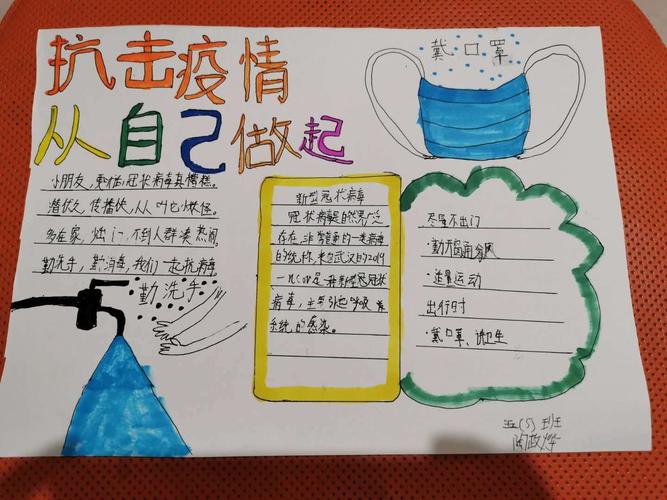 抗击疫情
从自己做起
戴口罩
小朋友,要牢记,冠状病毒真糟糕。
潜伏久,传播快,人人叫它小妖怪。
多在家,少出门,不到人群凑热闹
勤洗手,勤消毒,我们一起抗病毒
勤洗手
新型冠状病毒
冠状病毒是自然界广泛
存在,非常重要的一类病毒
的统称,来自武汉的2019
病毒,主要引起呼吸
系统的感染。
尽量不出门
·勤开窗通风
·适量运动
出行时
·戴口罩、讲卫生
五(5)班